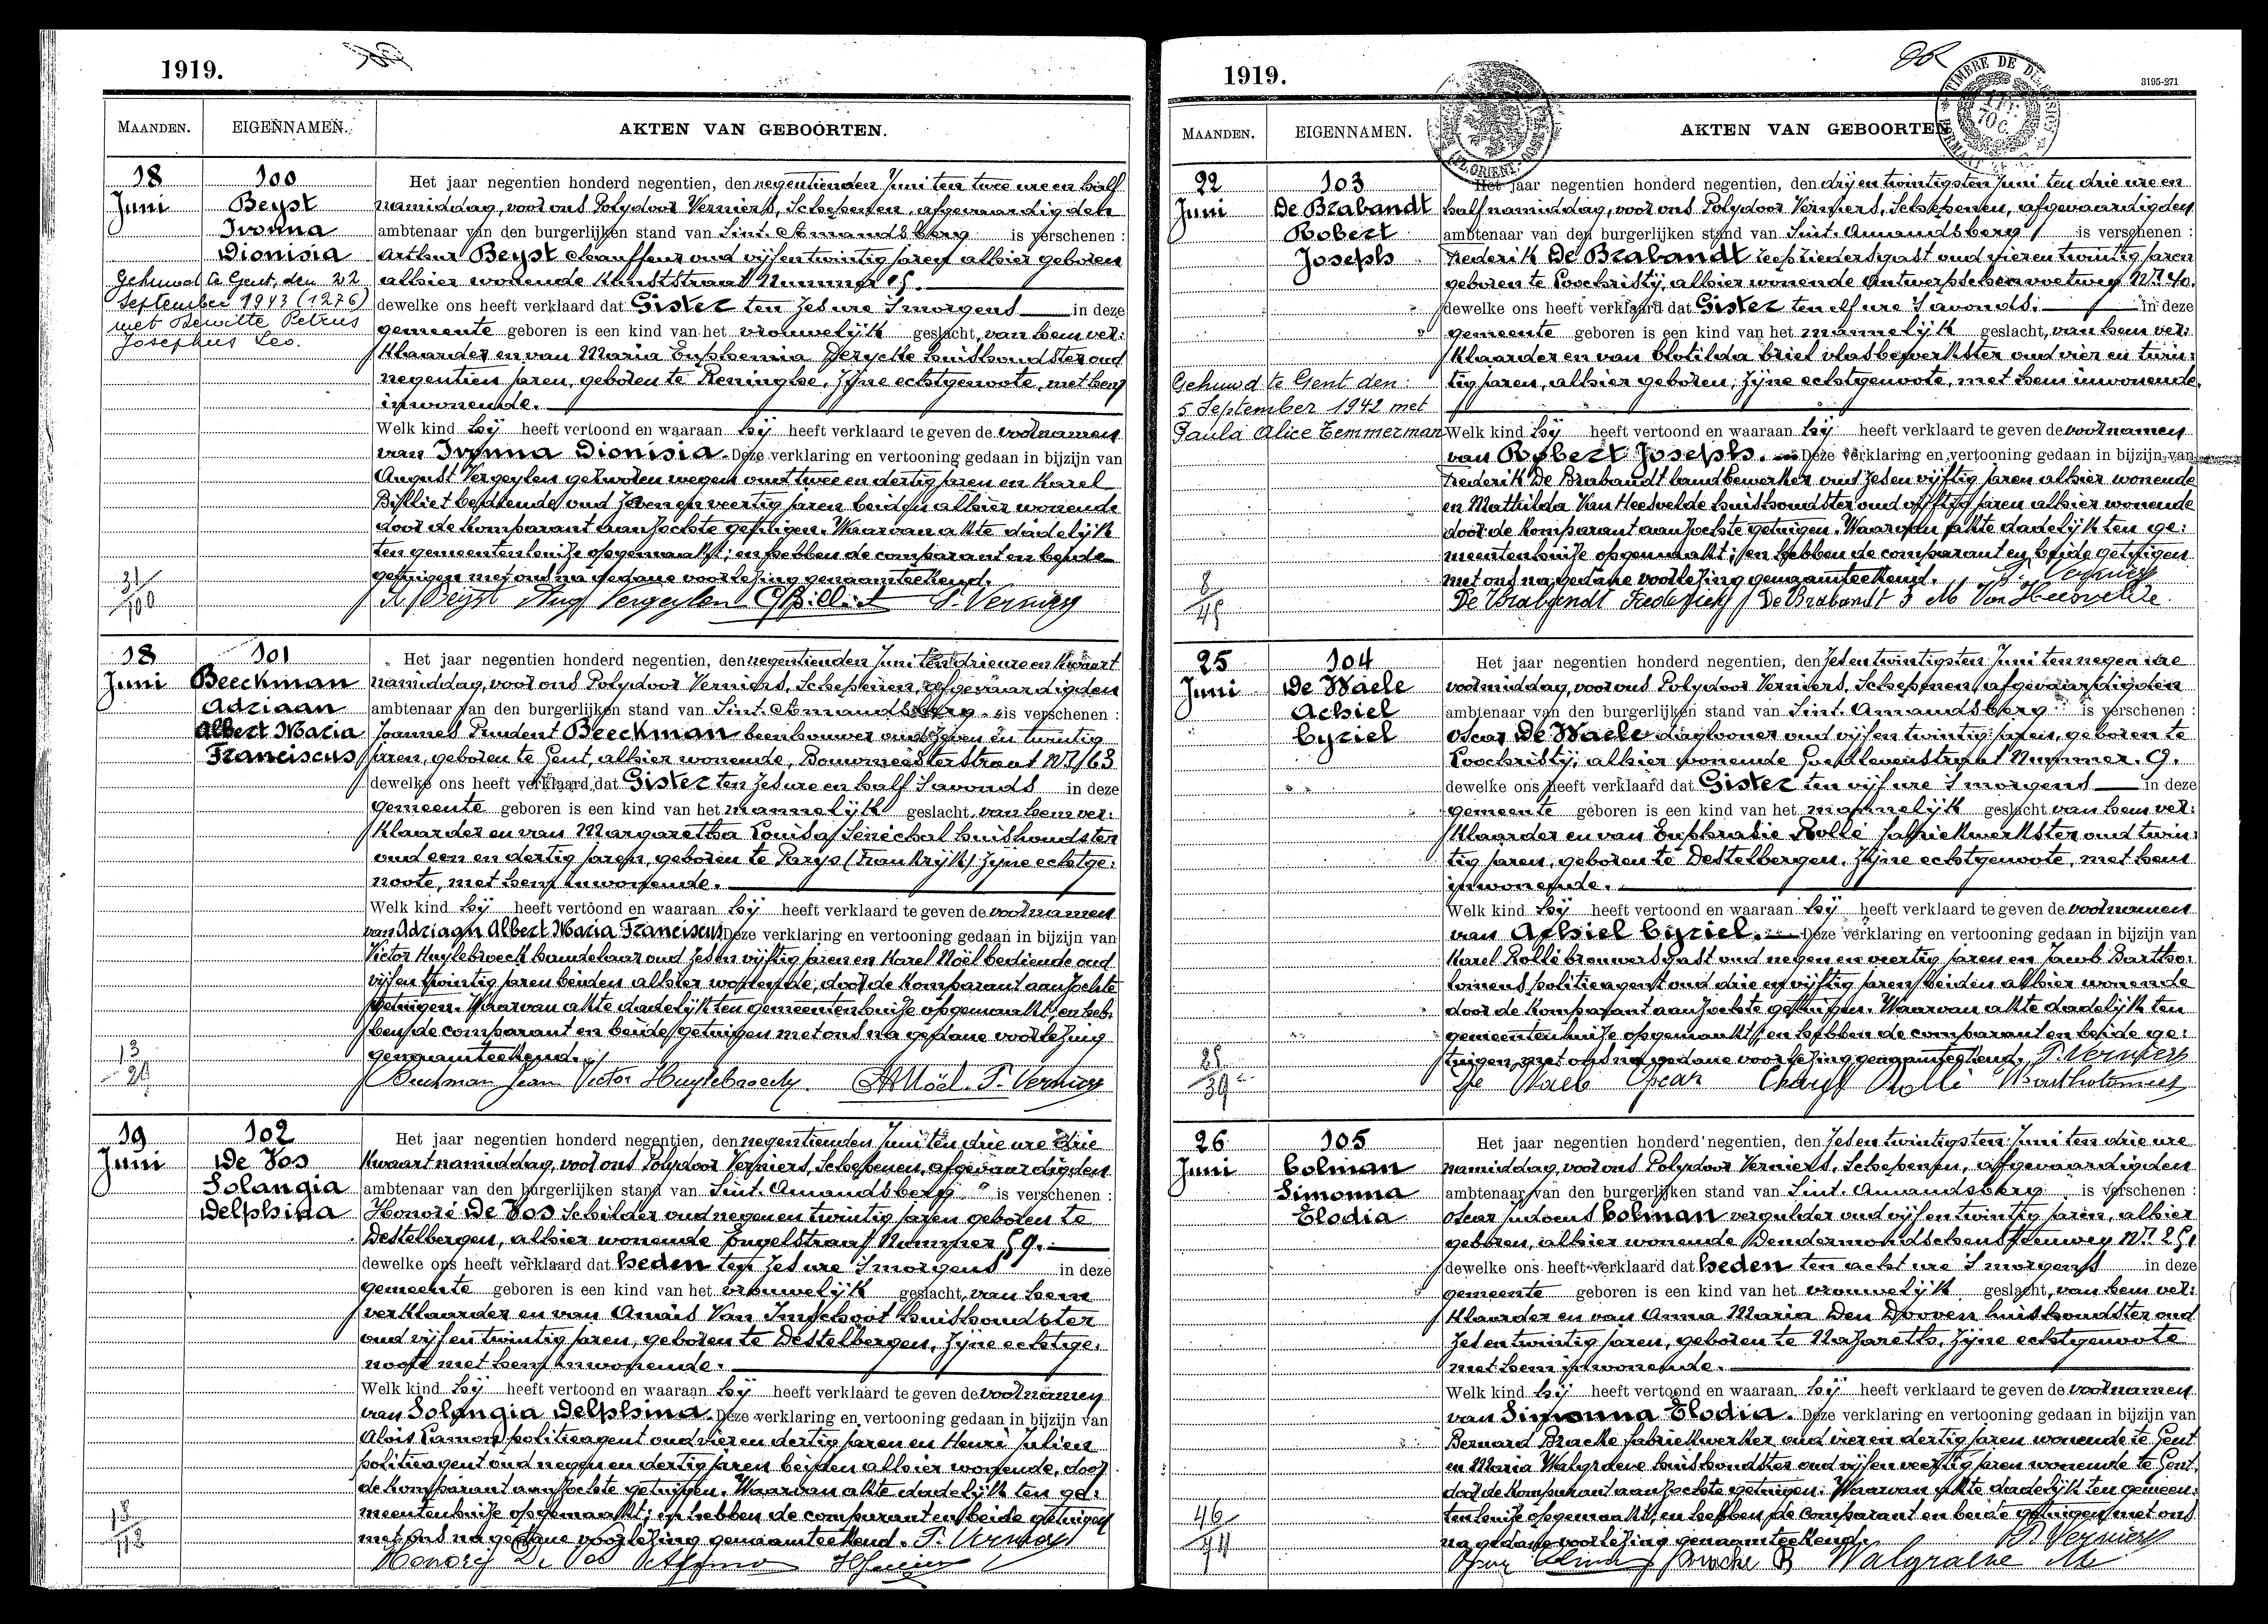 1919.
MAANDEN. EIGENNAMEN. AKTEN VAN GEBOORTEN.
18 Juni
100
Beyst
Ivonna
Dionisia
Gehuwd te Gent, den 22
September 1943 (1276)
met Dewitte Petrus
Josephus Leo.
31/100
Het jaar negentien honderd negentien, den negentienden Juni ten twee ure en half
namiddag, voor ons Polydoor Verniers, Schepenen, afgevaardigden
ambtenaar van den burgerlijken stand van Sint. Amandsberg is verschenen :
Arthur Beyst chauffeur oud vijfentwintig jaren alhier geboren
alhier wonende Kunststraat Nummer
dewelke ons heeft verklaard dat Gister ten zes ure Smorgens in deze
gemeente geboren is een kind van het vrouwelijk geslacht, van hem ver:
klaarder en van Maria Euphemia Derycke huishoudster oud
negentien jaren, geboren te Reninghe, zijne echtgenoote, met hem
inwonende.
Welk kind hij heeft vertoond en waaraan hij heeft verklaard te geven de voornamen
van Ivonna Dionisia. Deze verklaring en vertooning gedaan in bijzijn van
August Vergeylen gezworen weger oud twee en dertig jaren en Karel
Billiet bediende oud zeven en veertig jaren beiden alhier wonende
door de komparant aanzochte getuigen. Waarvan akte dadelijk
ten gemeentenhuize opgemaakt; en hebben de comparant en beide
getuigen met ons na gedane voorlezing genaamteekend.
A. Beyst Aug Vergeylen C Billiet P. Verniers
18 Juni
101
Beeckman
Adriaan
Albert Maria
Franciscus
13
Het jaar negentien honderd negentien, den negentienden Juni ten drie ure en kwaart
namiddag, voor ons Polydoor Verniers, Schepenen, afgevaardigden
ambtenaar van den burgerlijken stand van Sint. Amandsberg is verschenen :
Joannes Prudent Beeckman beenhouwer oud zeven en twintig
jaren, geboren te Gent, alhier wonende, Bouwmeesterstraat Nr. 63
dewelke ons heeft verklaard dat Gister ten zes ure en half Savonds in deze
gemeente geboren is een kind van het mannelijk geslacht, van hem ver:
klaarder en van Margaretha Louisa Sénéchal huishoudster
oud een en dertig jaren, geboren te Parys (Frankrijk) zijne echtge:
noote, met hem inwonende.
Welk kind hij heeft vertoond en waaraan hij heeft verklaard te geven de voornamen
van Adriaan Albert Maria Franciscus Deze verklaring en vertooning gedaan in bijzijn van
Victor Huylebroeck handelaar oud zesenvijftig jaren en Karel Noël bediende oud
vijfentwintig jaren beiden alhier wonende, door de komparant aanzochte
getuigen. Waarvan akte dadelijk ten gemeentenhuize opgemaakt, en heb:
ben de comparant en beide getuigen met ons na gedane voorlezing
genaamteekend.
Beeckman Jean Victor Huylebroeck Noël. P. Verniers
19 Juni
102
De Vos
Solangia
Delphina
Het jaar negentien honderd negentien, den negentienden Juni ten drie ure drie
kwaart namiddag, voor ons Polydoor Verniers, Schepenen, afgevaardigden
ambtenaar van den burgerlijken stand van Sint. Amandsberg is verschenen :
Honoré De Vos Schilder oud negenentwintig jaren geboren te
Destelbergen, alhier wonende Engelstraat Nummer 59.
dewelke ons heeft verklaard dat heden ten zes ure Smorgens in deze
gemeente geboren is een kind van het vrouwelijk geslacht, van hem
verklaarder en van Anaïs Van Imschoot huishoudster
oud vijfentwintig jaren, geboren te Destelbergen, zijne echtge:
noote met hem inwonende.
Welk kind hij heeft vertoond en waaraan hij heeft verklaard te geven de voornamen
van Solangia Delphina. Deze verklaring en vertooning gedaan in bijzijn van
Aloïs politieagent oud vieren dertig jaren en Henri Julien
politieagent oud negen en dertig jaren beiden alhier wonende, door
de komparant aanzochte getuigen. Waarvan akte dadelijk ten ge:
meentenhuize opgemaakt; en hebben de comparant en beide getuigen
met ons na gedane voorlezing genaamteekend. P. Verniers
Honoré De Vos
1919.
3195-271
MAANDEN. EIGENNAMEN. AKTEN VAN GEBOORTEN
22 Juni
103
De Brabandt
Robert
Joseph
Gehuwd te Gent den
5 September 1942 met
Paula Alice Temmerman
8/45
Het jaar negentien honderd negentien, den drijentwintigsten Juni ten drie ure en
half namiddag, voor ons Polydoor Verniers, Schepenen, afgevaardigden
ambtenaar van den burgerlijken stand van Sint. Amandsberg is verschenen :
Frederik De Brabandt oud vierentwintig jaren
geboren te Loochristij, alhier wonende Antwerpschenvoetweg Nr. 40.
dewelke ons heeft verklaard dat Gister ten elf ure Savonds. in deze
gemeente geboren is een kind van het mannelijk geslacht, van hem ver:
klaarder en van Clotilda Criel vlasbewerkster oud vier en twin:
tig jaren, alhier geboren, zijne echtgenoote, met hem inwonende.
Welk kind hij heeft vertoond en waaraan hij heeft verklaard te geven de voornamen
van Robert Joseph. Deze verklaring en vertooning gedaan in bijzijn van
Frederik De Brabandt landbewerker oud zesenvijftig jaren alhier wonende
en Mathilda Van Heesvelde huishoudster oud vijftig jaren alhier wonende
door de komparant aanzochte getuigen. Waarvan akte dadelijk ten ge:
meentenhuize opgemaakt; en hebben de comparant en beide getuigen
met ons na gedane voorlezing genaamteekend. P. Verniers
De Brabandt Frederick De Brabandt F M Van Heesvelde
25 Juni
104
De Waele
Achiel
Cyriel
39
Het jaar negentien honderd negentien, den zesentwintigsten Juni ten negen ure
voormiddag, voor ons Polydoor Verniers, Schepenen, afgevaardigden
ambtenaar van den burgerlijken stand van Sint. Amandsberg is verschenen :
Oscar De Waele dagloner oud vijfentwintig jaren, geboren te
Loochristij, alhier wonende Goedlevenstraat Nummer. 9.
dewelke ons heeft verklaard dat Gister ten vijf ure Smorgens in deze
gemeente geboren is een kind van het mannelijk geslacht van hem ver:
klaarder en van Euphrasie Rollé fabriekwerkster oud twin:
tig jaren, geboren te Destelbergen, zijne echtgenoote, met hem
inwonende.
Welk kind hij heeft vertoond en waaraan hij heeft verklaard te geven de voornamen
van Achiel Cyriel. Deze verklaring en vertooning gedaan in bijzijn van
Karel Rollé brouwersgast oud negen en veertig jaren en Jacob Bartho:
lomeus politieagent oud drie en vijftig jaren beiden alhier wonende
door de komparant aanzochte getuigen. Waarvan akte dadelijk ten
gemeentenhuize opgemaakt; en hebben de comparant en beide ge:
tuigen met ons na gedane voorlezing genaamteekend. P. Verniers
De Waele Oscar Charl Rollé Bartholomeus
26 Juni
105
Colman
Simonna
Elodia
46
Het jaar negentien honderd negentien, den zesentwintigsten Juni ten drie ure
namiddag, voor ons Polydoor Verniers, Schepenen, afgevaardigden
ambtenaar van den burgerlijken stand van Sint. Amandsberg is verschenen :
Oscar Judocus Colman vergulder oud vijfentwintig jaren, alhier
geboren, alhier wonende Dendermondschensteenweg Nr. 251
dewelke ons heeft verklaard dat heden ten acht ure Smorgens in deze
gemeente geboren is een kind van het vrouwelijk geslacht, van hem ver:
klaarder en van Anna Maria Den Dooven huishoudster oud
zesentwintig jaren, geboren te Nazareth, zijne echtgenoote
met hem inwonende.
Welk kind hij heeft vertoond en waaraan hij heeft verklaard te geven de voornamen
van Simonna Elodia. Deze verklaring en vertooning gedaan in bijzijn van
Bernard Bracke fabriekwerker oud vieren dertig jaren wonende te Gent
en Maria Walgraeve huishoudster oud vijfenveertig jaren wonende te Gent,
door de komparant aanzochte getuigen. Waarvan akte dadelijk ten gemeen:
tenhuize opgemaakt, en hebben de comparant en beide getuigen met ons
na gedane voorlezing genaamteekend. P. Verniers
Bracke B Walgraeve M